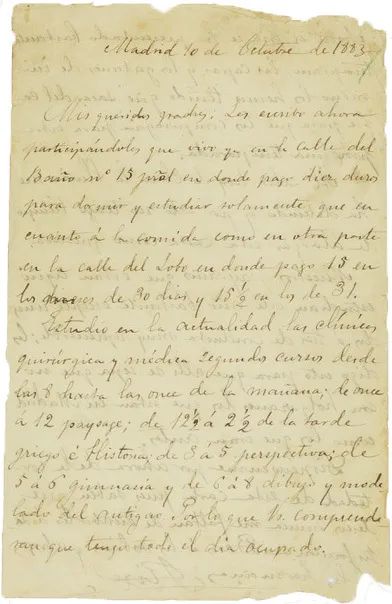 Madrid 10 de Octubre de 1883
Mis queridos padres: Les escribo ahora
participándoles que vivo ya en la calle del
Baño nº 15 pñal en donde pago diez duros
para dormir y estudiar solamente, que en
cuanto á la comida como en otra parte
en la calle del Lobo en donde pago 15 en
los meses de 30 dias y 15 ½ en los de 31.
Estudio en la actualidad las clínicas
quirúrgica y médica segundos cursos desde
las 8 hasta las once de la mañana; de once
a 12 paysage; de 12 ½ a 2 ½ de la tarde
griego é Historia; de 3 á 5 perspectiva; de
5 a 6 gimnasia y de 6 á 8 dibujo y mode
lado del antiguo. Por lo que Vs. comprende
ran que tengo todo el dia ocupado.